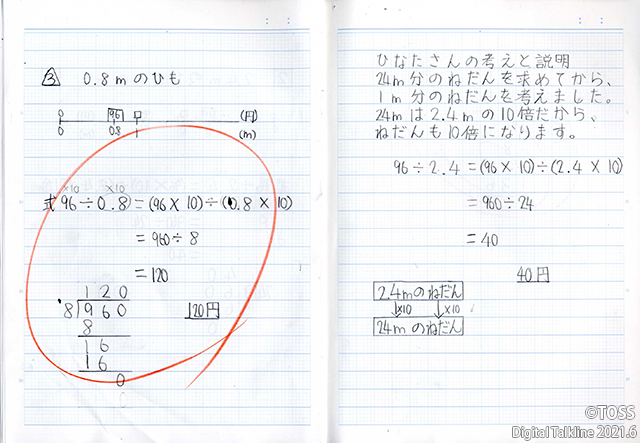 ③ 0.8mのひも
0 96 □ (円)
0 0.8 1 (m)
×10 ×10
式 96÷0.8=(96×10)÷(0.8×10)
=960÷8
=120
120
8)960 120円
8
16
16
0
ひなたさんの考えと説明
24m分のねだんを求めてから、
1m分のねだんを考えました。
24mは2.4mの10倍だから、
ねだんも10倍になります。
96÷2.4=(96×10)÷(2.4×10)
=960÷24
=40
40円
2.4mのねだん
×10 ×10
24mのねだん
©TOSS
Digital Talkline 2021.6